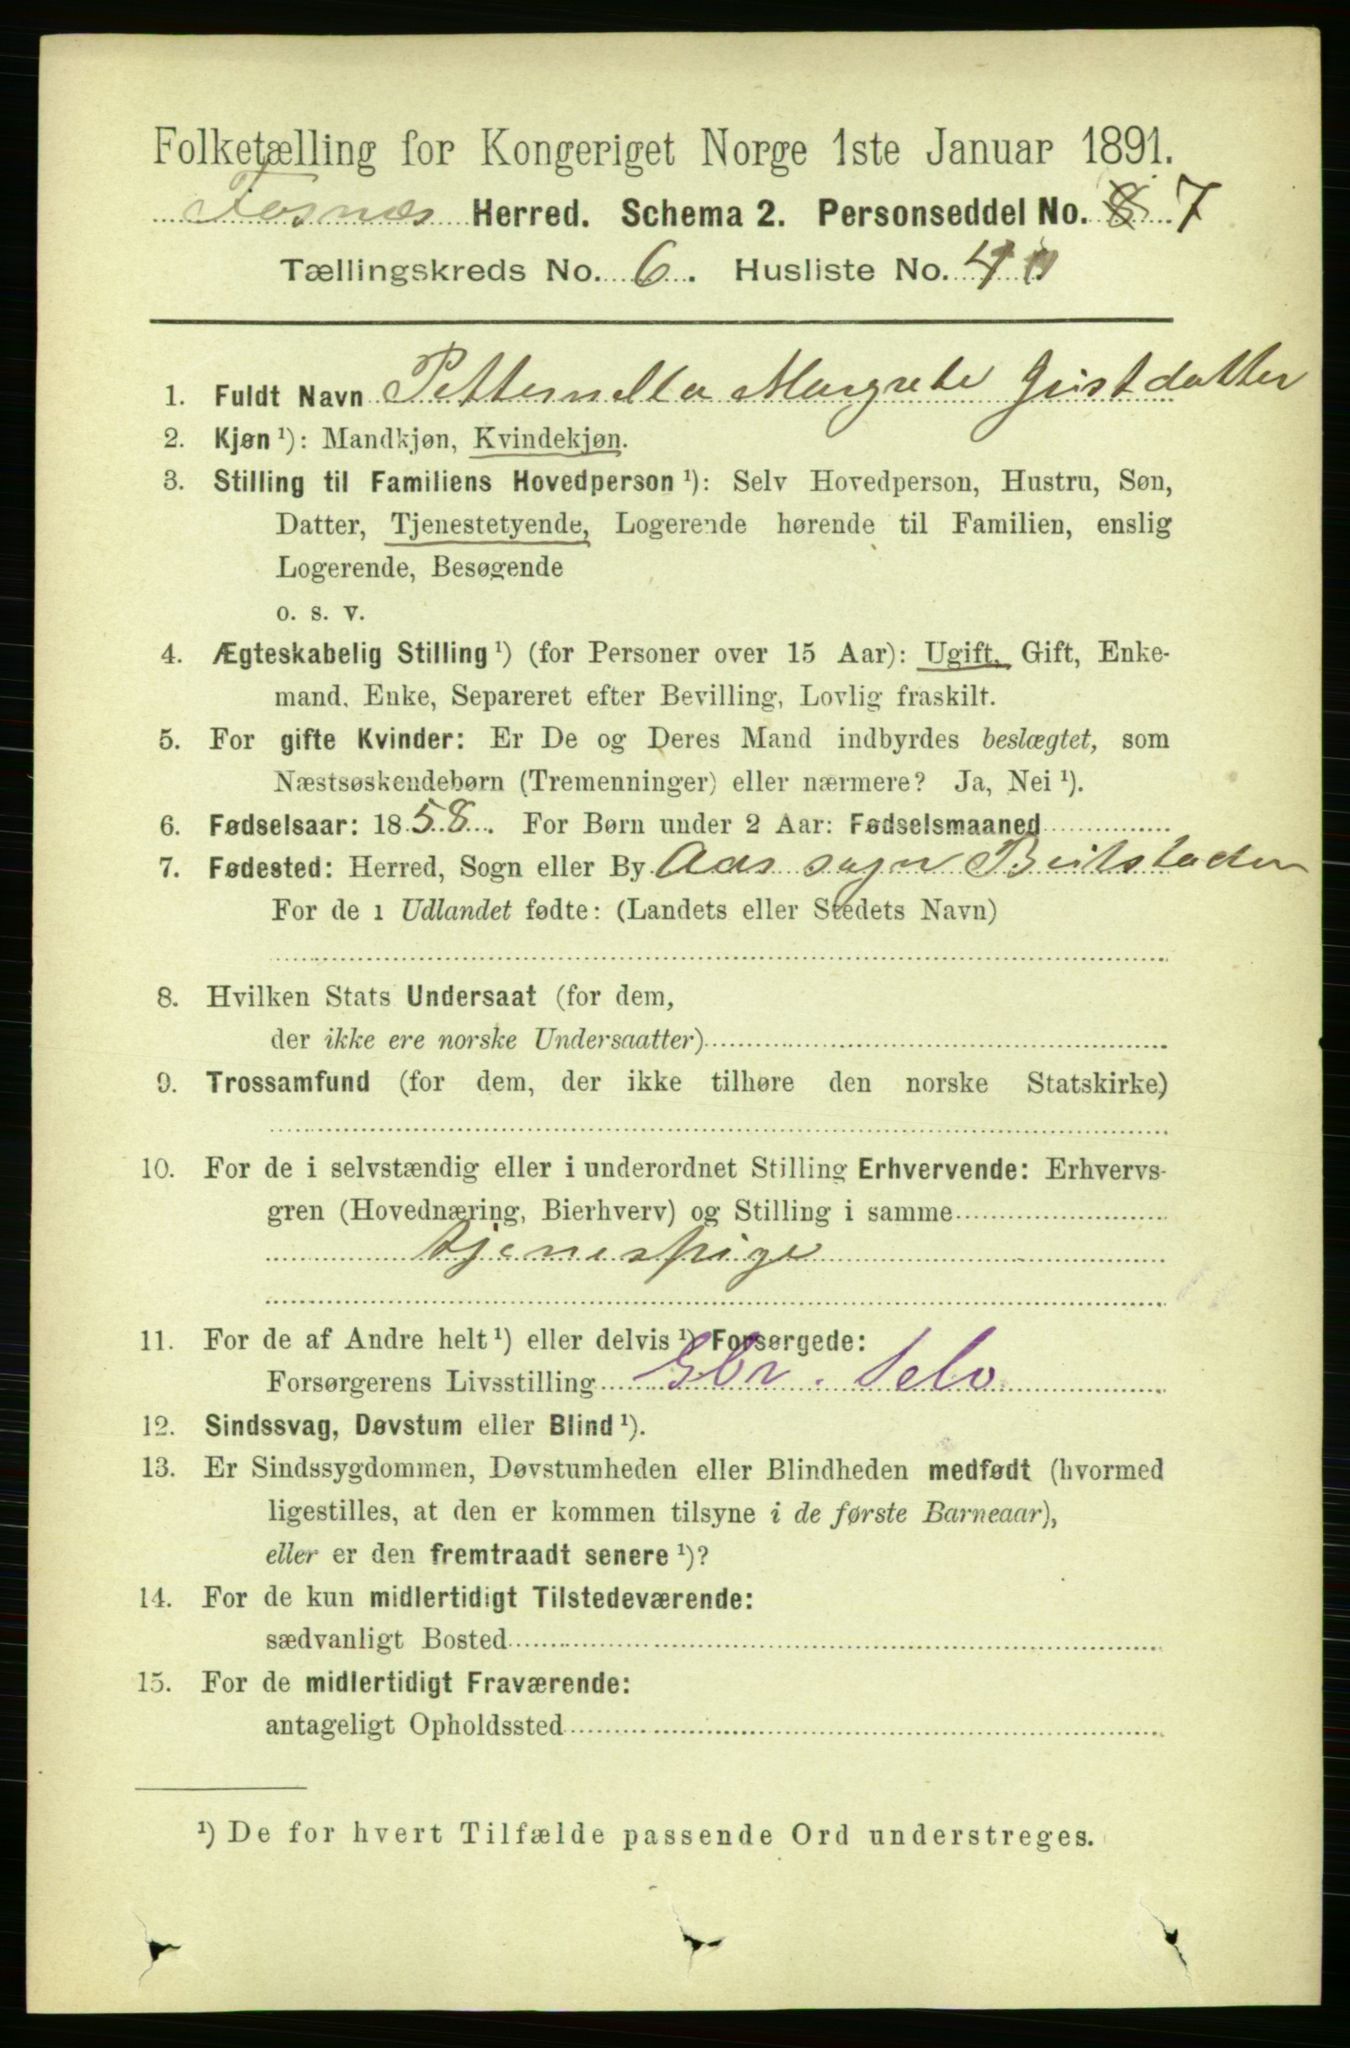 Folketælling for Kongeriget Norge 1ste Januar 1891.
Fosnæs Herred. Schema 2. Personseddel No. 8 7
Tællingskreds No. 6. Husliste No. 4
1. Fuldt Navn Petternella Margrete Justdatter
2. Kjøn ¹): Mandkjøn, Kvindekjøn.
3. Stilling til Familiens Hovedperson ¹): Selv Hovedperson, Hustru, Søn,
Datter, Tjenestetyende, Logerende hørende til Familien, enslig
Logerende, Besøgende
o. s. v.
4. Ægteskabelig Stilling ¹) (for Personer over 15 Aar): Ugift, Gift, Enke-
mand, Enke, Separeret efter Bevilling, Lovlig fraskilt.
5. For gifte Kvinder: Er De og Deres Mand indbyrdes beslægtet, som
Næstsøskendebørn (Tremenninger) eller nærmere? Ja, Nei ¹).
6. Fødselsaar: 1858. For Børn under 2 Aar: Fødselsmaaned
7. Fødested: Herred, Sogn eller By Aas sogn Beitstaden
For de i Udlandet fødte: (Landets eller Stedets Navn)
8. Hvilken Stats Undersaat (for dem,
der ikke ere norske Undersaatter)
9. Trossamfund (for dem, der ikke tilhøre den norske Statskirke)
10. For de i selvstændig eller i underordnet Stilling Erhvervende: Erhvervs-
gren (Hovednæring, Bierhverv) og Stilling i samme
tjenespige
11. For de af Andre helt ¹) eller delvis ¹) Forsørgede:
Forsørgerens Livsstilling Gbr. Selv
12. Sindssvag, Døvstum eller Blind ¹).
13. Er Sindssygdommen, Døvstumheden eller Blindheden medfødt (hvormed
ligestilles, at den er kommen tilsyne i de første Barneaar),
eller er den fremtraadt senere ¹)?
14. For de kun midlertidigt Tilstedeværende:
sædvanligt Bosted
15. For de midlertidigt Fraværende:
antageligt Opholdssted
¹) De for hvert Tilfælde passende Ord understreges.